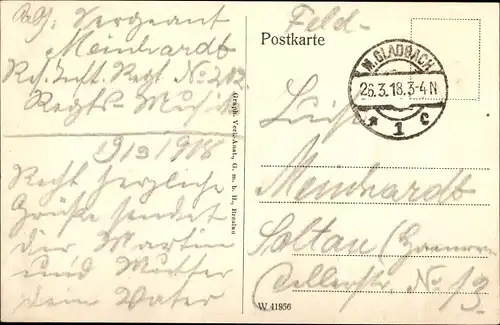 Abs: Sergeant
Meinhardt
Res. Inft. Regt No 212
Regts-Musik
19/3 1918
Recht herzliche
Grüße sendet
dir Martin
und Mutter
dein Vater
Graph. Verl.-Anst., G. m. b. H., Breslau
Feld-
Postkarte
M. GLADBACH
26.3.18.3-4 N
* 1 c
Meinhardt
Soltau (Hannover
Cellerstr. No 13
W 41956